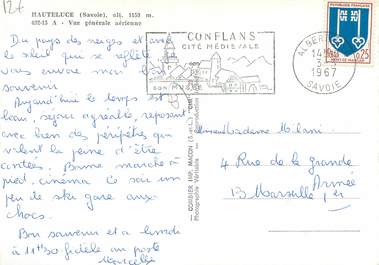 12€
HAUTELUCE (Savoie), alt. 1150 m.
422-15 A - Vue générale aérienne
Du pays des neiges et avec
le soleil qui se reflète
vous envoie mon bon
souvenir
Aujourd'hui le temps est
beau, séjour agréable, reposant
avec bien des péripéties qui
valent la peine d'être
contées. Bonne marche à
pied, cinéma. Ce soir un
peu de ski gare aux
chocs.
Bon souvenir et à lundi
à 11H30 fidèle au poste
Marcelle
COMBIER IMP. MACON (S.-et-L.) "CIM"
Photographie Véritable - Reproduction
CONFLANS
CITÉ MÉDIÉVALE
SON MUSÉE
ALBERTVILLE
14
3
1967
SAVOIE
REPUBLIQUE FRANÇAISE
0,25
MONT-DE-MARSAN
Madame Milani
4 Rue de la grande
Armée
13 Marseille 1er